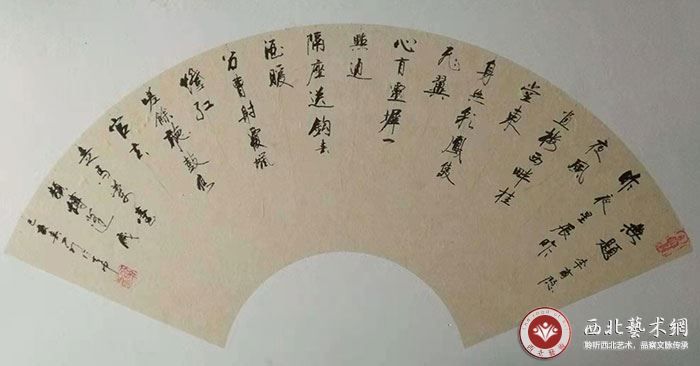 無題 李商隐
昨夜星辰昨
夜風
楼西畔桂
堂東
身無彩鳳雙
飛翼
心有靈犀一
點通
隔座送鈎春
酒暖
分曹射覆蠟
燈紅
嗟餘聽鼓應
官去
走馬蘭臺
類轉蓬
己亥
西北藝术網
聆听西北艺术，品察文脉传承